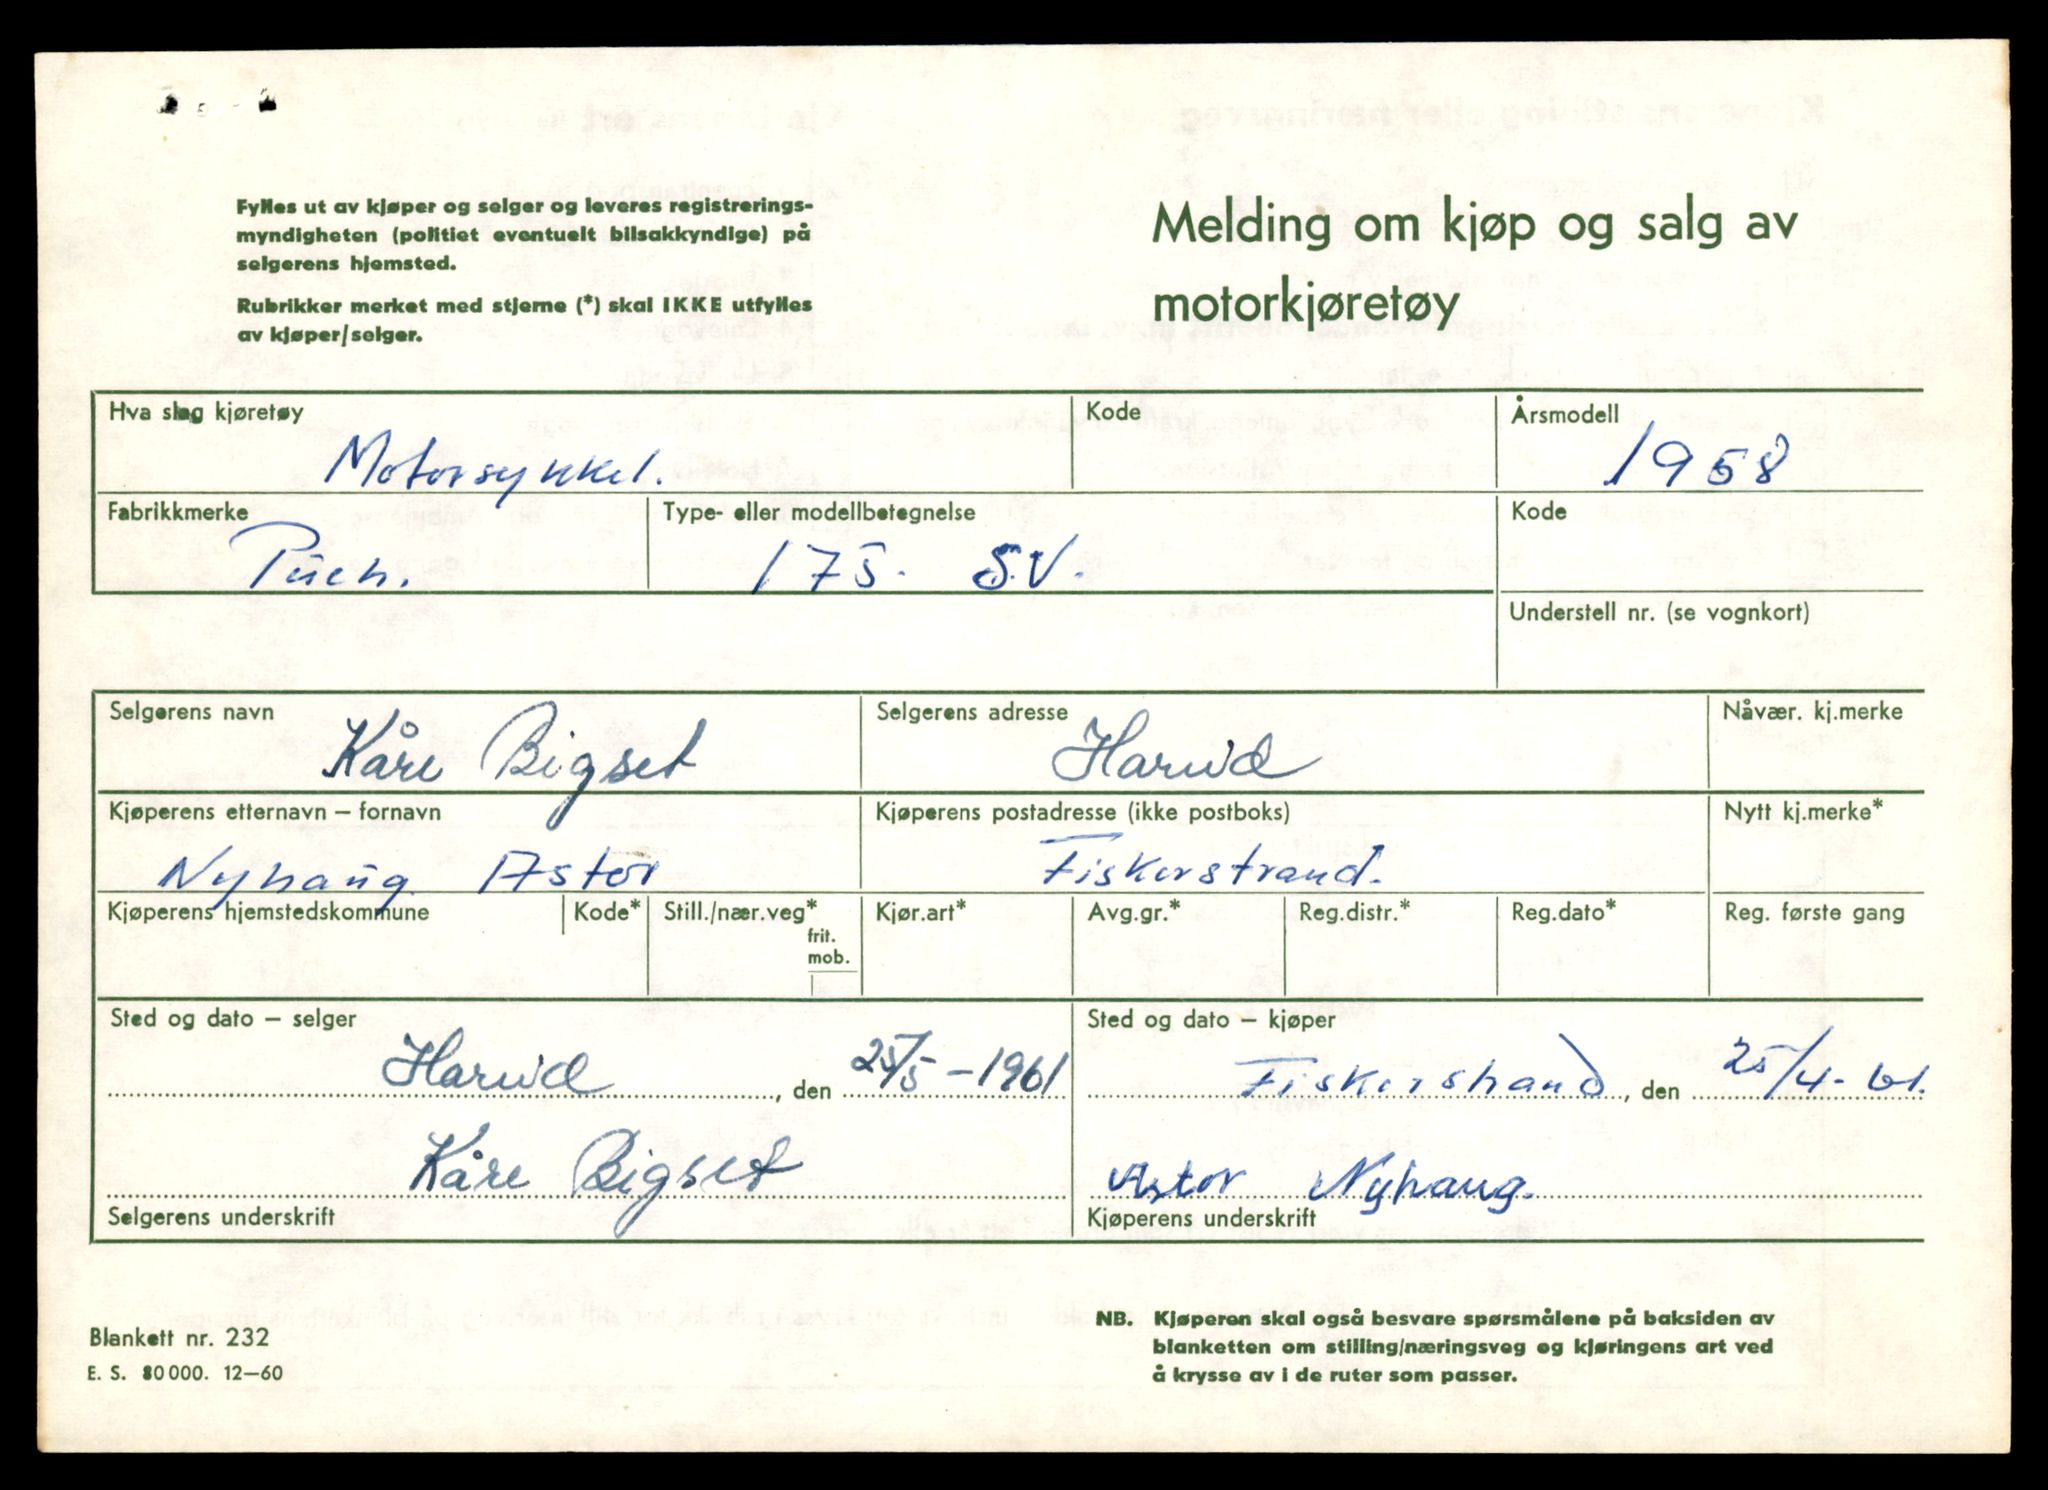 Fylles ut av kjøper og selger og leveres registrerings-
myndigheten (politiet eventuelt bilsakkyndige) på
selgerens hjemsted.
Rubrikker merket med stjerne (*) skal IKKE utfylles
av kjøper/selger.
Melding om kjøp og salg av
motorkjøretøy
Hva slag kjøretøy
Motorsykkel.
Kode
Årsmodell
1958
Fabrikkmerke
Puch.
Type- eller modellbetegnelse
175. S.V.
Kode
Understell nr. (se vognkort)
Selgerens navn
Kåre Bigset
Selgerens adresse
Hareid
Nåvær. kj.merke
Kjøperens etternavn – fornavn
Nyhaug Astor
Kjøperens postadresse (ikke postboks)
Fiskerstrand.
Nytt kj.merke*
Kjøperens hjemstedskommune
Kode*
Still./nær.veg*
frit.
mob.
Kjør.art*
Avg.gr.*
Reg.distr.*
Reg.dato*
Reg. første gang
Sted og dato – selger
Hareid, den 25/5 – 1961
Kåre Bigset
Selgerens underskrift
Sted og dato – kjøper
Fiskerstrand, den 25/4 - 61.
Astor Nyhaug.
Kjøperens underskrift
Blankett nr. 232
E. S. 80 000. 12–60
NB. Kjøperen skal også besvare spørsmålene på baksiden av
blanketten om stilling/næringsveg og kjøringens art ved
å krysse av i de ruter som passer.